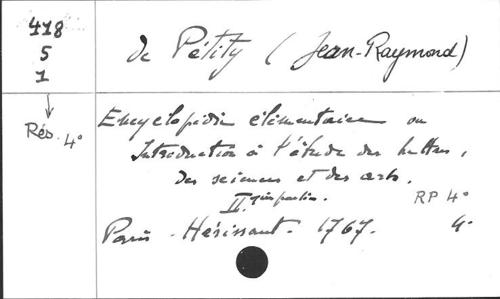 418
5
1
Rés. 4°
de Pétity (Jean-Raymond)
Encyclopédie élémentaire ou
Introduction à l'étude des lettres,
des sciences et des arts.
II partie. RP 4°
Paris - Hérissant - 1767. 4°